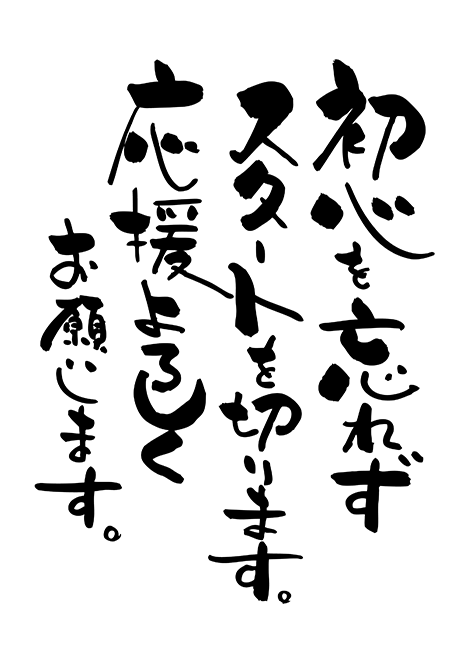 初心を忘れず
スタートを切ります。
応援よろしく
お願じます。